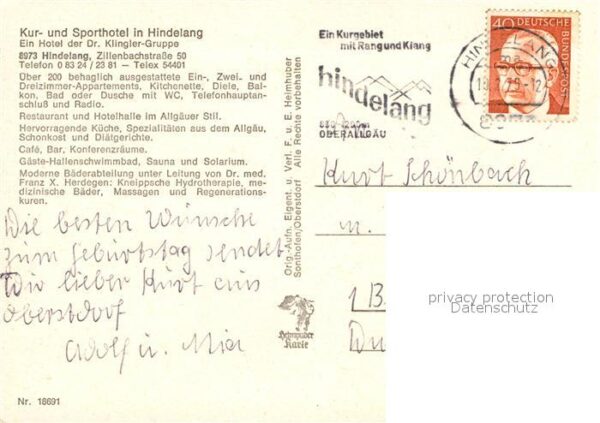 Kur- und Sporthotel in Hindelang
Ein Hotel der Dr. Klingler-Gruppe
8973 Hindelang, Zillenbachstraße 50
Telefon 0 83 24 / 23 81 – Telex 54401
Über 200 behaglich ausgestattete Ein-, Zwei- und
Dreizimmer-Appartements, Kitchenette, Diele, Bal-
kon, Bad oder Dusche mit WC, Telefonhauptan-
schluß und Radio.
Restaurant und Hotelhalle im Allgäuer Stil.
Hervorragende Küche, Spezialitäten aus dem Allgäu,
Schonkost und Diätgerichte.
Café, Bar, Konferenzräume.
Gäste-Hallenschwimmbad, Sauna und Solarium.
Moderne Bäderabteilung unter Leitung von Dr. med.
Franz X. Herdegen: Kneippsche Hydrotherapie, me-
dizinische Bäder, Massagen und Regenerations-
kuren.
Die besten Wünsche
zum Geburtstag sendet
Dir lieber Kurt aus
Oberstdorf
Adolf u. Mia
Nr. 18691
Orig.-Aufn. Eigent. u. Verl. F. u. E. Heimhuber
Sonthofen/Oberstdorf Alle Rechte vorbehalten
Heimhuber
Karte
Ein Kurgebiet
mit Rang und Klang
hindelang
OBERALLGÄU
40 DEUTSCHE
BUNDESPOST
Kurt Schönbach
u.
1 B
privacy protection
Datenschutz